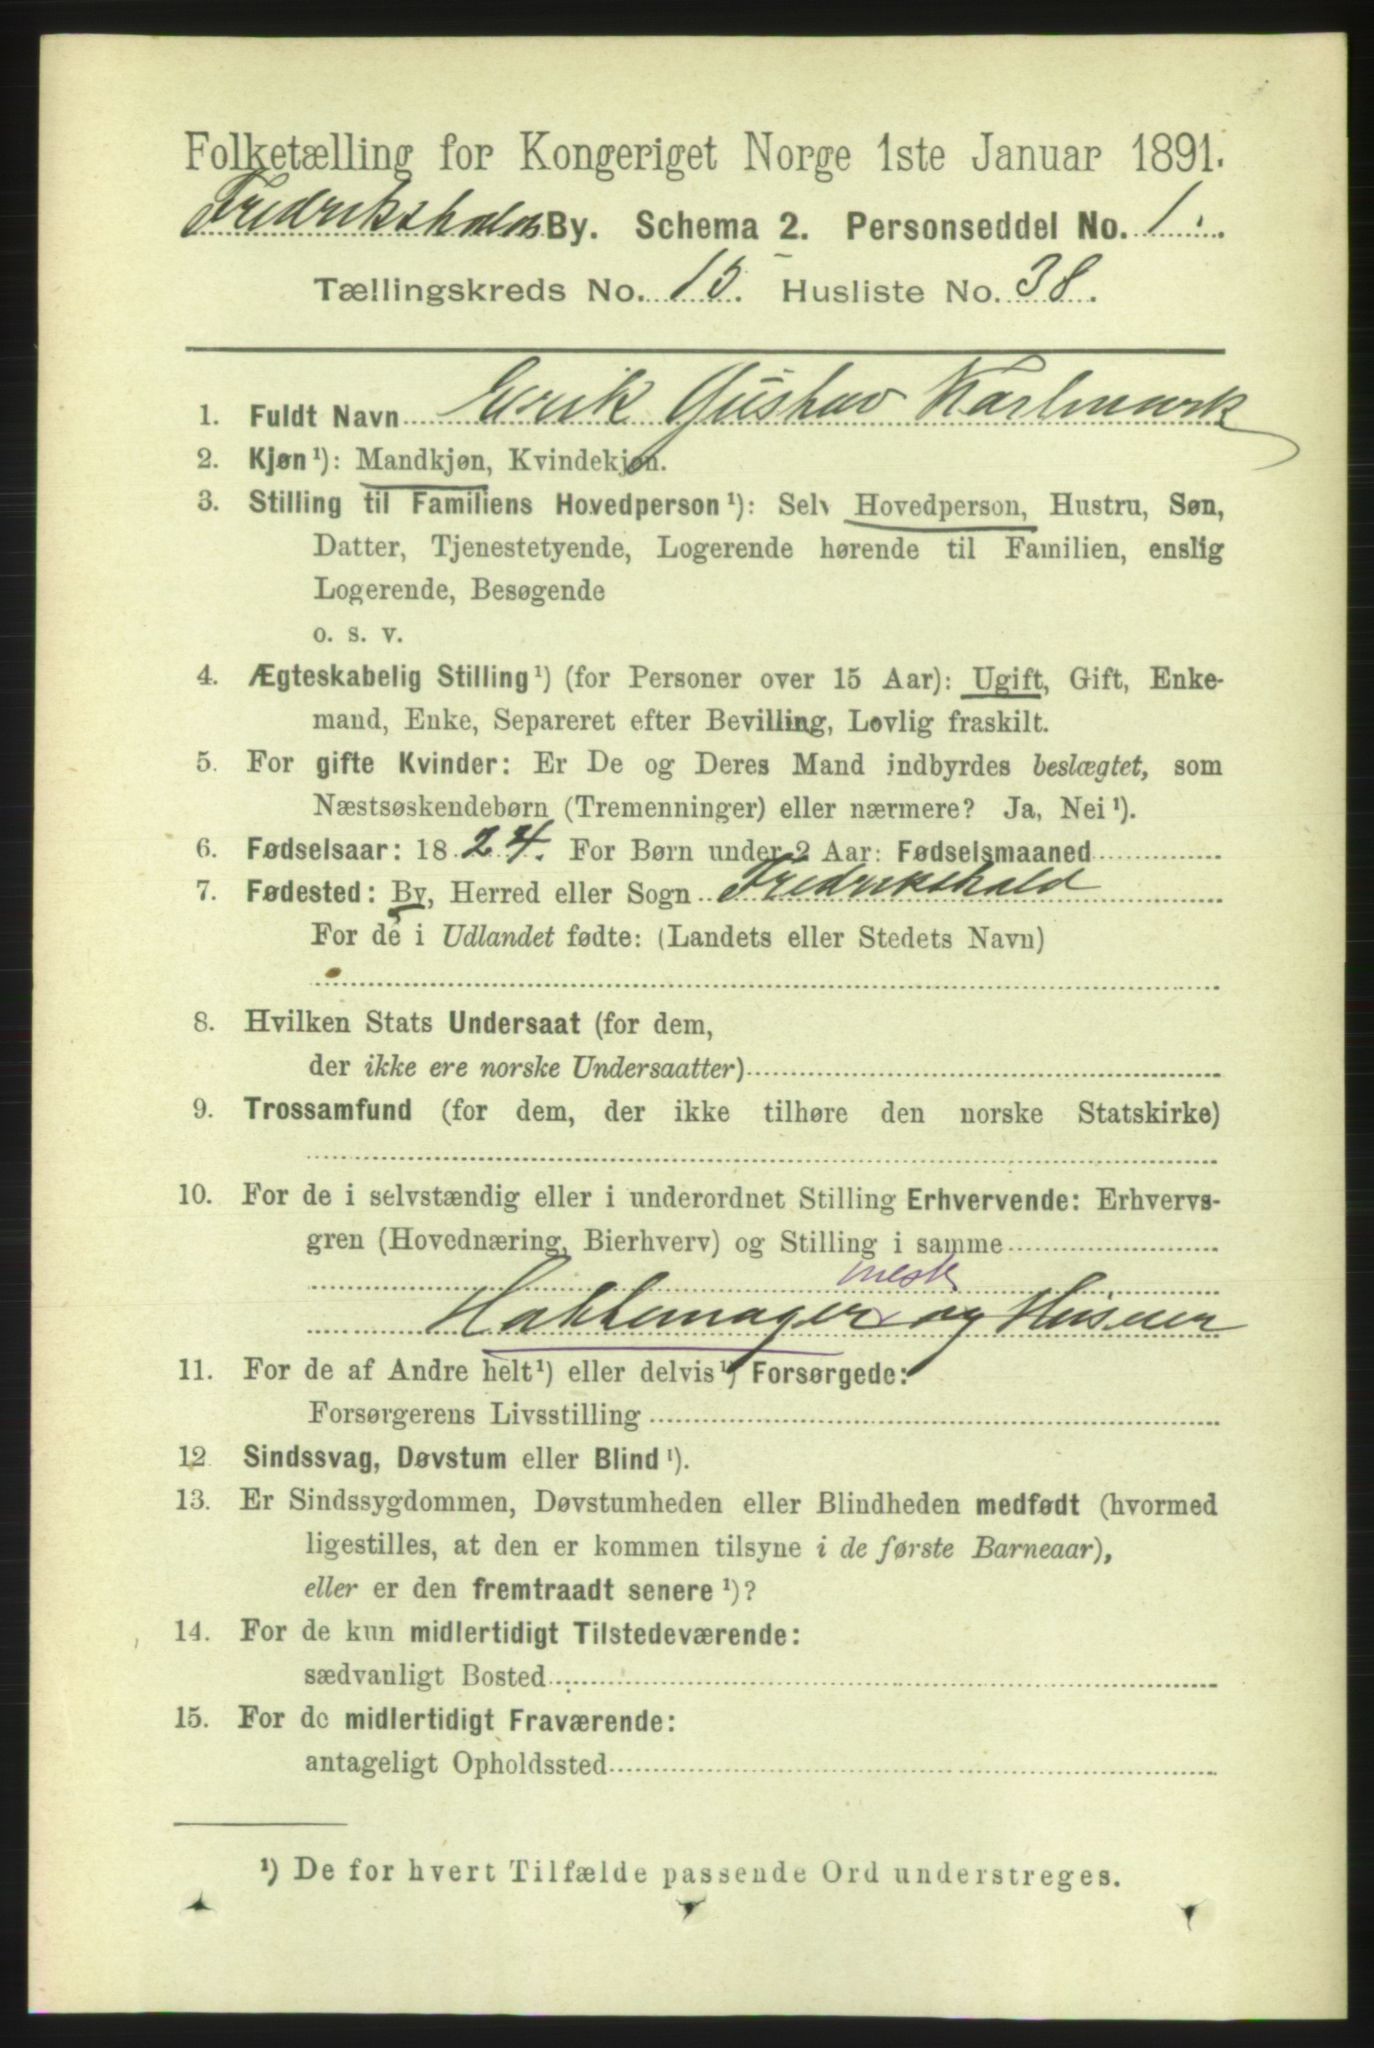 Folketælling for Kongeriget Norge 1ste Januar 1891.
Fredrikshalds By. Schema 2. Personseddel No. 1.
Tællingskreds No. 15. Husliste No. 38.
1. Fuldt Navn Erik Gustav Karlmark
2. Kjøn ¹): Mandkjøn, Kvindekjøn.
3. Stilling til Familiens Hovedperson ¹): Selv Hovedperson, Hustru, Søn,
Datter, Tjenestetyende, Logerende hørende til Familien, enslig
Logerende, Besøgende
o. s. v.
4. Ægteskabelig Stilling ¹) (for Personer over 15 Aar): Ugift, Gift, Enke-
mand, Enke, Separeret efter Bevilling, Lovlig fraskilt.
5. For gifte Kvinder: Er De og Deres Mand indbyrdes beslægtet, som
Næstsøskendebørn (Tremenninger) eller nærmere? Ja, Nei ¹).
6. Fødselsaar: 1824. For Børn under 2 Aar: Fødselsmaaned
7. Fødested: By, Herred eller Sogn Fredrikshald
For de i Udlandet fødte: (Landets eller Stedets Navn)
8. Hvilken Stats Undersaat (for dem,
der ikke ere norske Undersaatter)
9. Trossamfund (for dem, der ikke tilhøre den norske Statskirke)
10. For de i selvstændig eller i underordnet Stilling Erhvervende: Erhvervs-
gren (Hovednæring, Bierhverv) og Stilling i samme
mest
Hattemager og Huseier
11. For de af Andre helt ¹) eller delvis ¹) Forsørgede:
Forsørgerens Livsstilling
12 Sindssvag, Døvstum eller Blind ¹).
13. Er Sindssygdommen, Døvstumheden eller Blindheden medfødt (hvormed
ligestilles, at den er kommen tilsyne i de første Barneaar),
eller er den fremtraadt senere ¹)?
14. For de kun midlertidigt Tilstedeværende:
sædvanligt Bosted
15. For de midlertidigt Fraværende:
antageligt Opholdssted
¹) De for hvert Tilfælde passende Ord understreges.